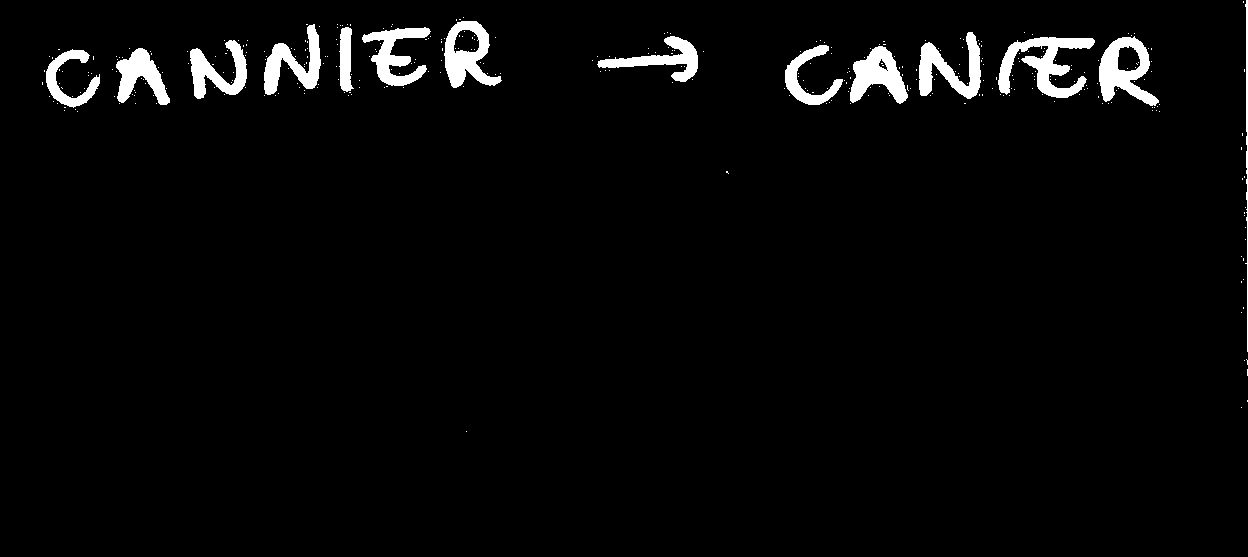 CANNIER → CANIER